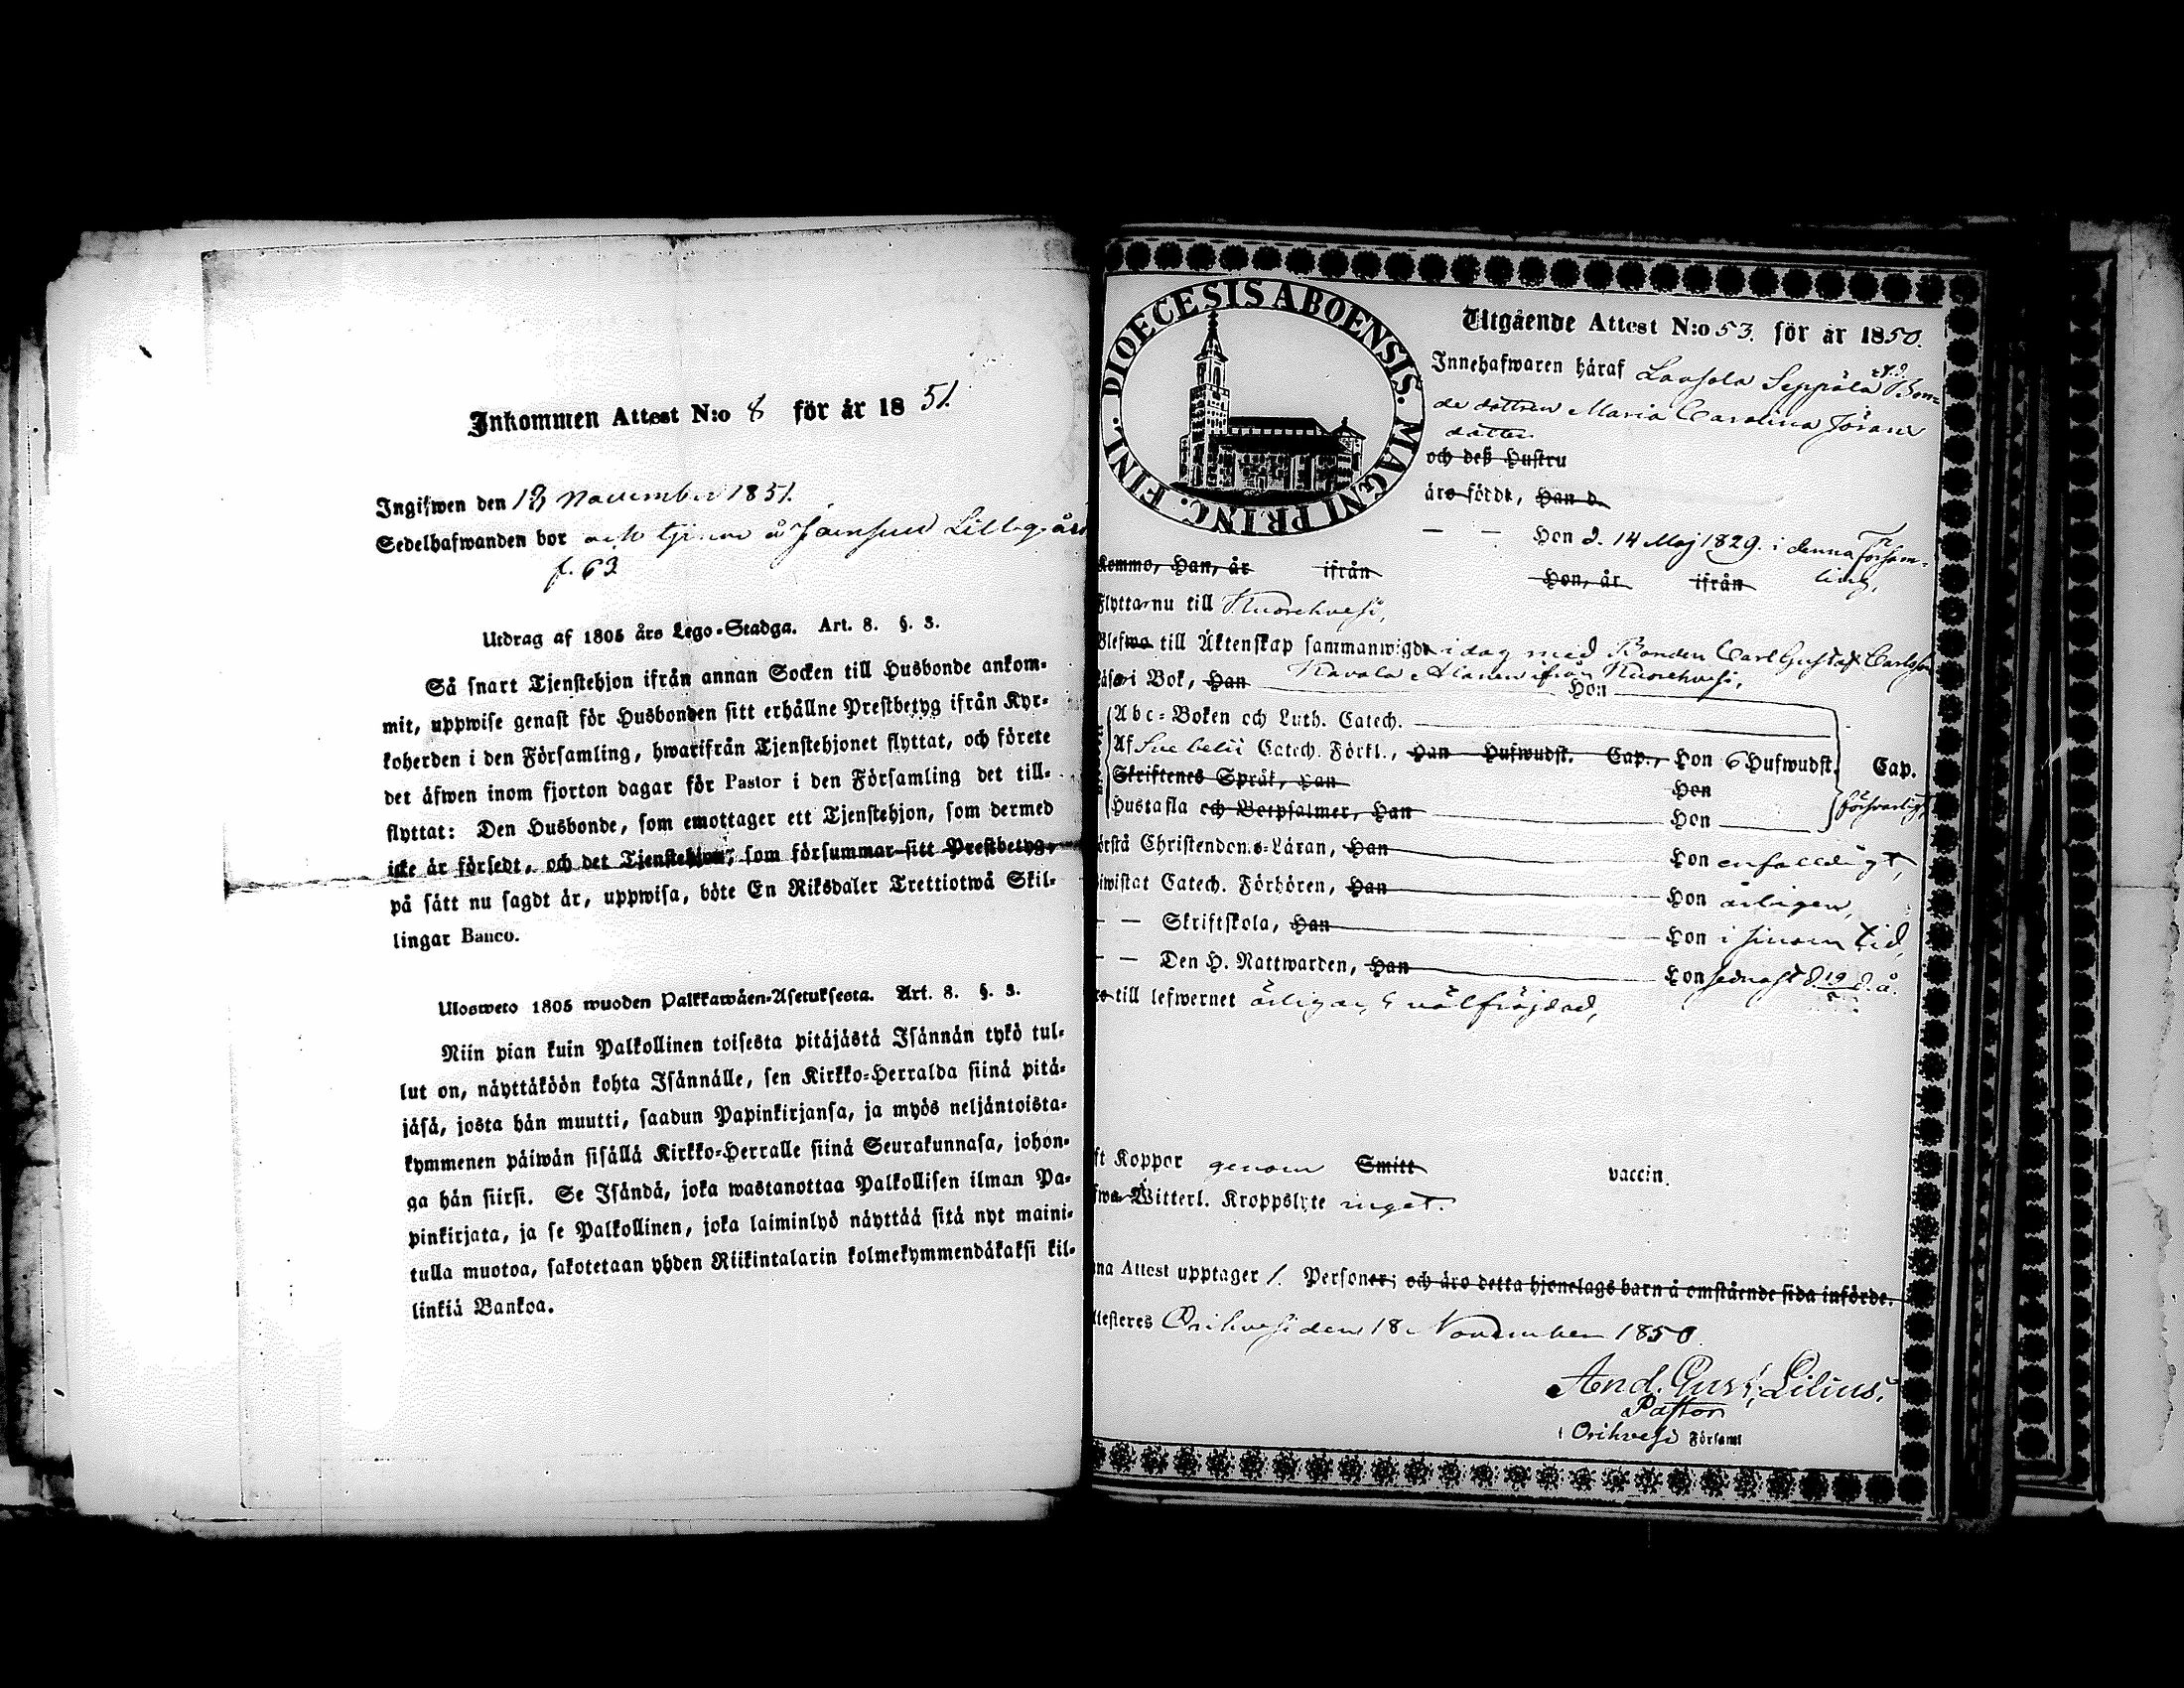 Inkommen Attest N:o 8 för år 1851.
Ingifwen den 13 November 1851.
Sedelhafwanden bor och tjenar å Lillegård
f. 63
Utdrag af 1805 års Lego-Stadga. Art. 8. §. 3.
Så snart Tjenstehjon ifrån annan Socken till Husbonde ankom-
mit, uppwise genast för Husbonden sitt erhållne Prestbetyg ifrån Kyr-
koherden i den Församling, hwarifrån Tjenstehjonet flyttat, och förete
det äfwen inom fjorton dagar för Pastor i den Församling det till-
flyttat: Den Husbonde, som emottager ett Tjenstehjon, som dermed
icke är försedt, och det Tjenstehjon, som försummar sitt Prestbetyg,
på sätt nu sagdt är, uppwisa, böte En Riksdaler Trettiotwå Skil-
lingar Banco.
Ulosweto 1805 wuoden Palkkawäen-Asetuksesta. Art. 8. §. 3.
Niin pian kuin Palkollinen toisesta pitäjästä Isännän tykö tul-
lut on, näyttäköön kohta Isännälle, sen Kirkko-Herralda siinä pitä-
jäsä, josta hän muutti, saadun Papinkirjansa, ja myös neljäntoista-
kymmenen päiwän sisällä Kirkko-Herralle siinä Seurakunnasa, johon-
ga hän siirsi. Se Isändä, joka wastanottaa Palkollisen ilman Pa-
pinkirjata, ja se Palkollinen, joka laiminlyö näyttää sitä nyt maini-
tulla muotoa, sakotetaan yhden Riikintalarin kolmekymmendäkaksi kil-
linkiä Bankoa.
DIOECESIS ABOENSIS. MAGNI PRINC. FINL.
Utgående Attest N:o 53. för år 1850.
Innehafwaren häraf Seppälä Bon-
de dottren Maria Carolina Jöran
dotter
och deß Hustru
äro född, Han d.
— — Hon d. 14 Maj 1829. i denna Försam-
ling,
Kommo, Han, år ifrån Hon, år ifrån
Flytta nu till Kuorehvesi,
Blefwo till Äktenskap sammanwigde i dag med Bonden Carl Gustaf Carlsson
Alanen ifrån Kuorehvesi,
Läsa i Bok, Han Hon
Abc-Boken och Luth. Catech.
Af Svebelii Catech. Förkl., Han Hufwudst. Cap., Hon 6 Hufwudst. Cap.
Skriftenes Språk, Han Hon
Hustafla och Botpsalmer, Han Hon försvarligt
Förstå Christendoms-Läran, Han Hon enfaldigt,
Biwistat Catech. Förhören, Han Hon årligen,
— — Skriftskola, Han Hon i sinom tid,
— — Den H. Nattwarden, Han Hon sednast d. d. å.
till lefwernet ärligen, & välfräjdad,
ft Koppor genom Smitt vaccin.
fwa Witterl. Kroppslyte inget.
na Attest upptager 1. Personer; och äro detta hjonelags barn å omstående sida införde.
ttesteres Orihvesi den 18 November 1850.
And. Gust. Lilius,
Pastor
i Orihvesi Förfaml